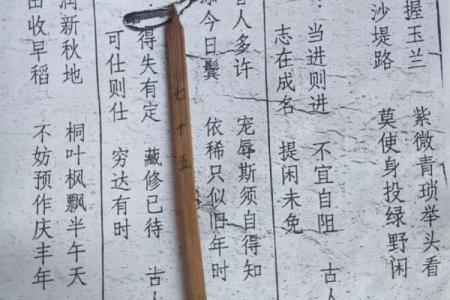 握玉兰 紫微青琐举头看
沙堤路 莫使身投绿野闲
当进则进 不宜自阻 古人
志在成名 提闲未免
人多许 宠辱斯须自得知
今日鬓 依稀只似旧年时
七十五
得失有定 藏修已待 古人
可仕则仕 穷达有时
润新秋地 桐叶枫飘半午天
田收早稻 不妨预作庆丰年